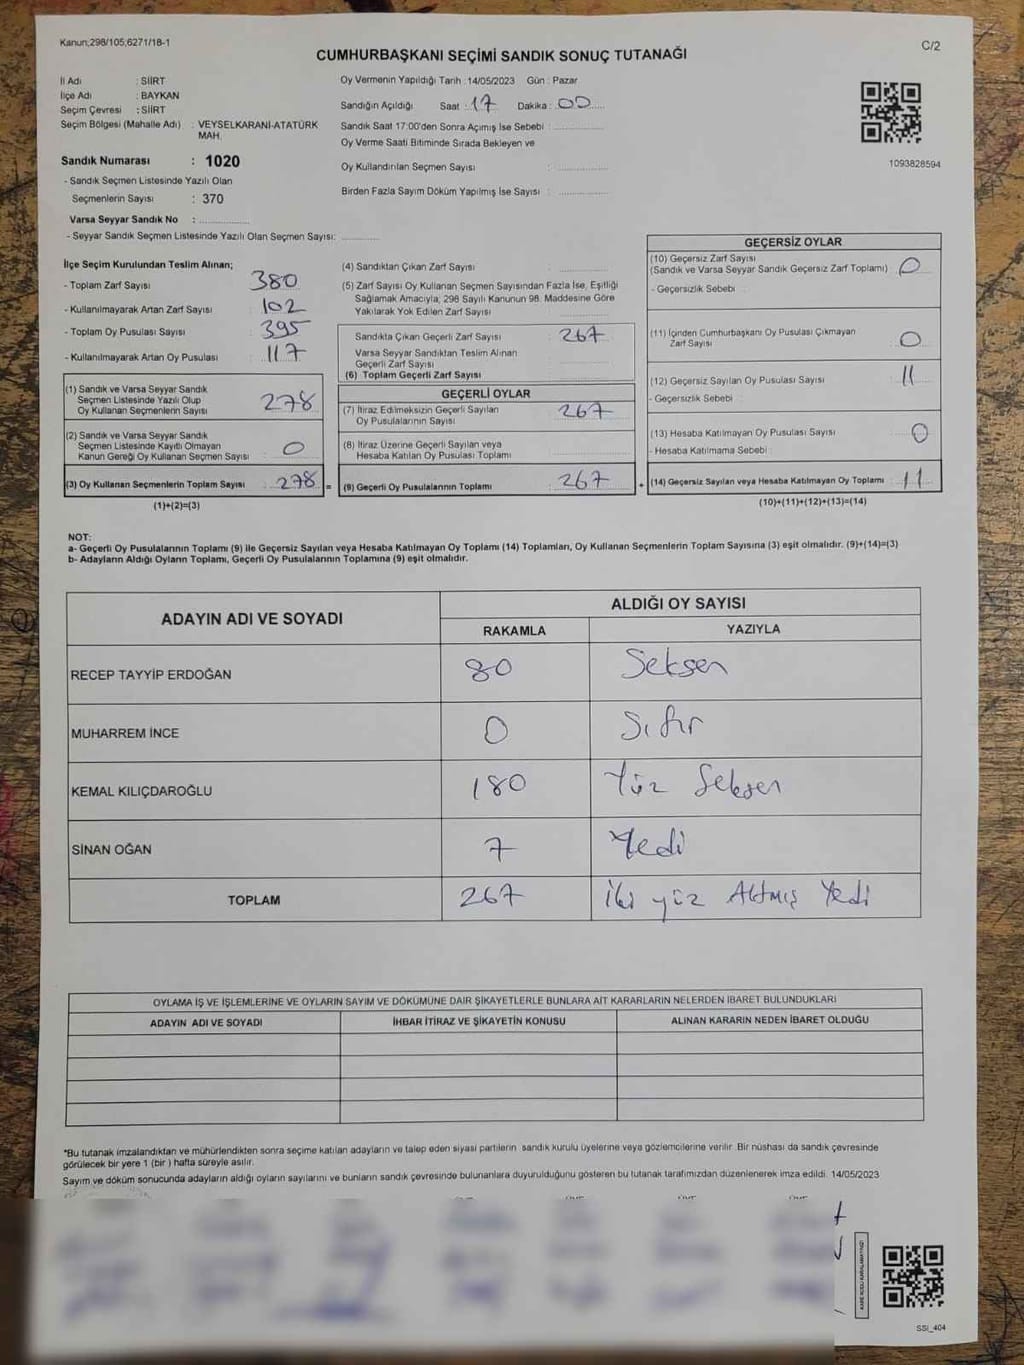 Kanun;298/105;6271/18-1
C/2
CUMHURBAŞKANI SEÇİMİ SANDIK SONUÇ TUTANAĞI
İl Adı : SİİRT
İlçe Adı : BAYKAN
Seçim Çevresi : SİİRT
Seçim Bölgesi (Mahalle Adı) : VEYSELKARANİ-ATATÜRK MAH.
Sandık Numarası : 1020
- Sandık Seçmen Listesinde Yazılı Olan
Seçmenlerin Sayısı : 370
Varsa Seyyar Sandık No : ................
- Seyyar Sandık Seçmen Listesinde Yazılı Olan Seçmen Sayısı: ............
Oy Vermenin Yapıldığı Tarih :14/05/2023 Gün : Pazar
Sandığın Açıldığı Saat : 17 Dakika : 00
Sandık Saat 17:00'den Sonra Açımış İse Sebebi : ................
Oy Verme Saati Bitiminde Sırada Bekleyen ve
Oy Kullandırılan Seçmen Sayısı : ................
Birden Fazla Sayım Döküm Yapılmış İse Sayısı : ................
1093828594
İlçe Seçim Kurulundan Teslim Alınan;
- Toplam Zarf Sayısı : 380
- Kullanılmayarak Artan Zarf Sayısı : 102
- Toplam Oy Pusulası Sayısı : 395
- Kullanılmayarak Artan Oy Pusulası : 117
(1) Sandık ve Varsa Seyyar Sandık
Seçmen Listesinde Yazılı Olup
Oy Kullanan Seçmenlerin Sayısı : 278
(2) Sandık ve Varsa Seyyar Sandık
Seçmen Listesinde Kayıtlı Olmayan
Kanun Gereği Oy Kullanan Seçmen Sayısı : 0
(3) Oy Kullanan Seçmenlerin Toplam Sayısı : 278 =
(1)+(2)=(3)
(4) Sandıktan Çıkan Zarf Sayısı : ................
(5) Zarf Sayısı Oy Kullanan Seçmen Sayısından Fazla İse, Eşitliği
Sağlamak Amacıyla; 298 Sayılı Kanunun 98. Maddesine Göre
Yakılarak Yok Edilen Zarf Sayısı : ................
Sandıkta Çıkan Geçerli Zarf Sayısı : 267
Varsa Seyyar Sandıktan Teslim Alınan
Geçerli Zarf Sayısı : ................
(6) Toplam Geçerli Zarf Sayısı : ................
GEÇERLİ OYLAR
(7) İtiraz Edilmeksizin Geçerli Sayılan
Oy Pusulalarının Sayısı : 267
(8) İtiraz Üzerine Geçerli Sayılan veya
Hesaba Katılan Oy Pusulası Toplamı : ................
(9) Geçerli Oy Pusulalarının Toplamı : 267 +
GEÇERSİZ OYLAR
(10) Geçersiz Zarf Sayısı
(Sandık ve Varsa Seyyar Sandık Geçersiz Zarf Toplamı) : 0
- Geçersizlik Sebebi :
(11) İçinden Cumhurbaşkanı Oy Pusulası Çıkmayan
Zarf Sayısı : 0
(12) Geçersiz Sayılan Oy Pusulası Sayısı : 11
- Geçersizlik Sebebi :
(13) Hesaba Katılmayan Oy Pusulası Sayısı : 0
- Hesaba Katılmama Sebebi :
(14) Geçersiz Sayılan veya Hesaba Katılmayan Oy Toplamı : 11
(10)+(11)+(12)+(13)=(14)
NOT:
a- Geçerli Oy Pusulalarının Toplamı (9) ile Geçersiz Sayılan veya Hesaba Katılmayan Oy Toplamı (14) Toplamları, Oy Kullanan Seçmenlerin Toplam Sayısına (3) eşit olmalıdır. (9)+(14)=(3)
b- Adayların Aldığı Oyların Toplamı, Geçerli Oy Pusulalarının Toplamına (9) eşit olmalıdır.
ADAYIN ADI VE SOYADI ALDIĞI OY SAYISI
RAKAMLA YAZIYLA
RECEP TAYYİP ERDOĞAN 80 Seksen
MUHARREM İNCE 0 Sıfır
KEMAL KILIÇDAROĞLU 180 Yüz Seksen
SİNAN OĞAN 7 Yedi
TOPLAM 267 İki yüz Altmış Yedi
OYLAMA İŞ VE İŞLEMLERİNE VE OYLARIN SAYIM VE DÖKÜMÜNE DAİR ŞİKAYETLERLE BUNLARA AİT KARARLARIN NELERDEN İBARET BULUNDUKLARI
ADAYIN ADI VE SOYADI İHBAR İTİRAZ VE ŞİKAYETİN KONUSU ALINAN KARARIN NEDEN İBARET OLDUĞU
*Bu tutanak imzalandıktan ve mühürlendikten sonra seçime katılan adayların ve talep eden siyasi partilerin sandık kurulu üyelerine veya gözlemcilerine verilir. Bir nüshası da sandık çevresinde
görülecek bir yere 1 (bir ) hafta süreyle asılır.
Sayım ve döküm sonucunda adayların aldığı oyların sayılarını ve bunların sandık çevresinde bulunanlara duyurulduğunu gösteren bu tutanak tarafımızdan düzenlenerek imza edildi. 14/05/2023
KARE KODU KARALAMAYINIZ!
SSİ_404